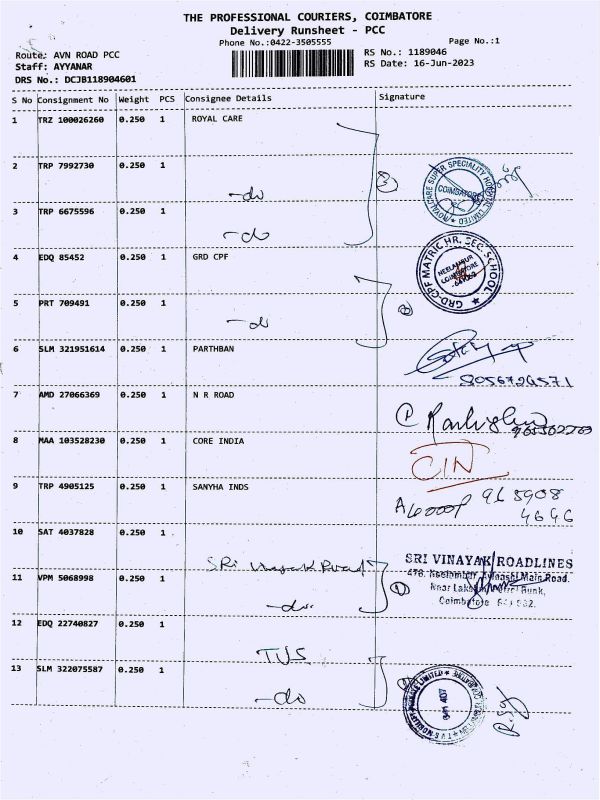 THE PROFESSIONAL COURIERS, COIMBATORE
Delivery Runsheet - PCC
Phone No.:0422-3505555
Page No.:1
Route: AVN ROAD PCC
RS No.: 1189046
Staff: AYYANAR
RS Date: 16-Jun-2023
DRS No.: DCJB118904601
S No Consignment No Weight PCS Consignee Details Signature
1 TRZ 100026260 0.250 1 ROYAL CARE
2 TRP 7992730 0.250 1
-do
ROYAL CARE SUPER SPECIALITY HOSPITAL LIMITED
COIMBATORE
3 TRP 6675596 0.250 1
-do
4 EDQ 85452 0.250 1 GRD CPF
GRD-CPF MATRIC HR. SEC. SCHOOL
NEELAMBUR
COIMBATORE
5 PRT 709491 0.250 1
-do
6 SLM 321951614 0.250 1 PARTHBAN
8056724571
7 AMD 27066369 0.250 1 N R ROAD
8 MAA 103528230 0.250 1 CORE INDIA
CIN
9 TRP 4905125 0.250 1 SANYHA INDS
963908
4646
10 SAT 4037828 0.250 1
SRi Vinayak Road
SRI VINAYAK ROADLINES
11 VPM 5068998 0.250 1
-do-
Main Road.
Coimbatore
12 EDQ 22740827 0.250 1
TVS
13 SLM 322075587 0.250 1
-do